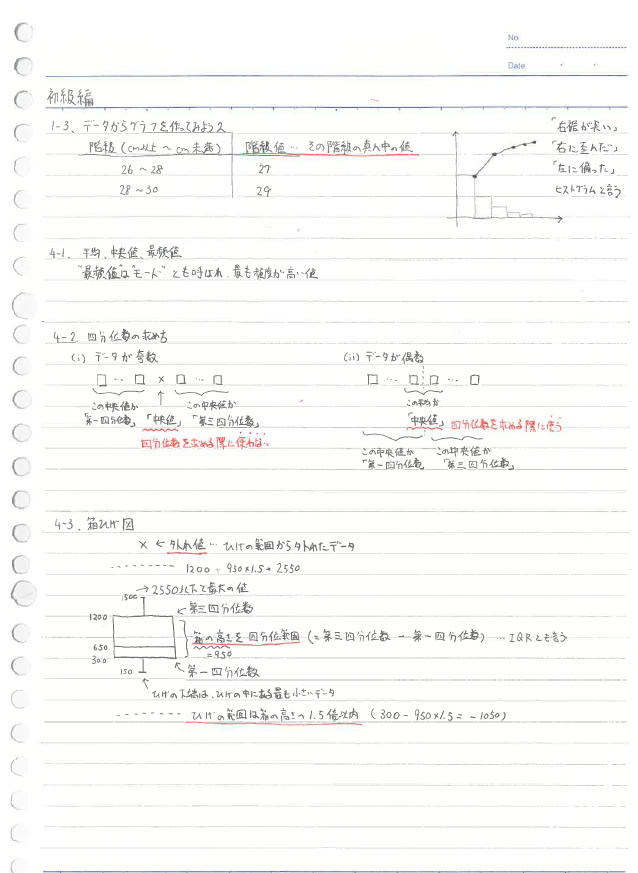 No.
Date
初級編
1-3. データからグラフを作ってみよう2
階級(cm以上 ～ cm未満) 階級値 … その階級の真ん中の値
26 ～ 28 27
28 ～ 30 29
「右裾が長い」
「右に歪んだ」
「左に偏った」
ヒストグラムと言う
4-1. 平均、中央値、最頻値
"最頻値"は"モード"とも呼ばれ、最も頻度が高い値
4-2. 四分位数の求め方
(i) データが奇数
□ … □ × □ … □
この中央値が この中央値が
「第一四分位数」 「中央値」 「第三四分位数」
四分位数を求める際に使わない
(ii) データが偶数
□ … □ □ … □
この平均が
「中央値」 四分位数を求める際に使う
この中央値が この中央値が
「第一四分位数」 「第三四分位数」
4-3. 箱ひげ図
× ← 外れ値 … ひげの範囲から外れたデータ
1200 + 950×1.5 = 2550
→ 2550以下で最大の値
1500
1200 ← 第三四分位数
箱の高さを四分位範囲 (= 第三四分位数 － 第一四分位数) … IQRとも言う
650 = 950
300
150 第一四分位数
ひげの下端は、ひげの中にある最も小さいデータ
ひげの範囲は箱の高さの1.5倍以内 (300 - 950×1.5 = -1050)